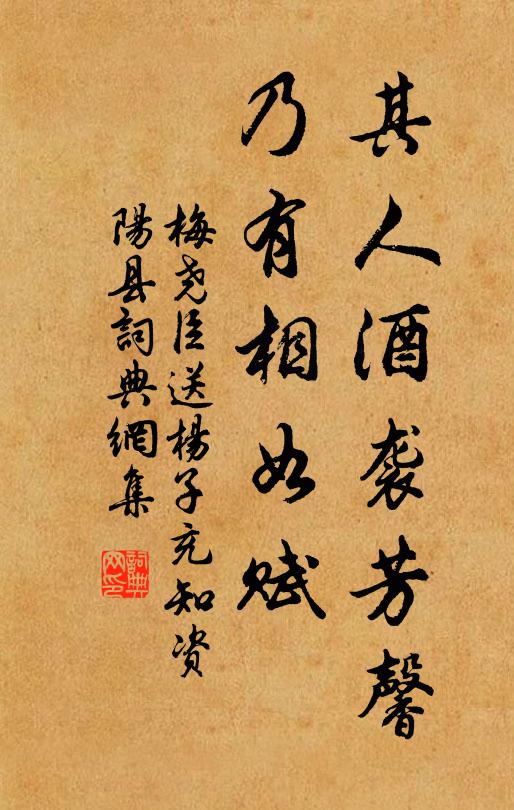 其人酒袭芳馨
乃有相如赋
梅尧臣送楊子充知资
陽县詞典網集
詞典网印